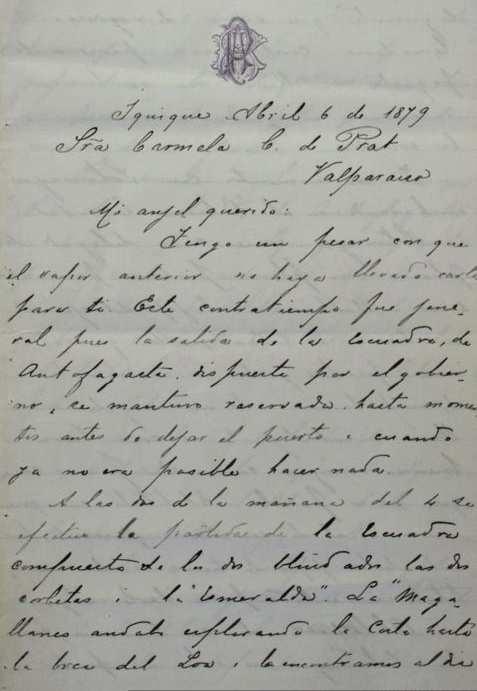 Iquique Abril 6 de 1879
Sra Carmela C. de Prat
Valparaiso
Mi anjel querido:
Tengo un pesar con que
el vapor anterior no haya llevado carta
para ti. Este contratiempo fue jene-
ral pues la salida de la escuadra, de
Antofagasta, dispuesta por el gobier-
no, se mantuvo reservada hasta momen
tos antes de dejar el puerto i cuando
ya no era posible hacer nada.
A las dos de la mañana del 4 se
efectuo la partida de la Escuadra
compuesta de los dos blindados las dos
corbetas i la "Esmeralda". La "Maga-
llanes andaba esplorando la Costa hasta
la boca del Loa i la encontramos al dia